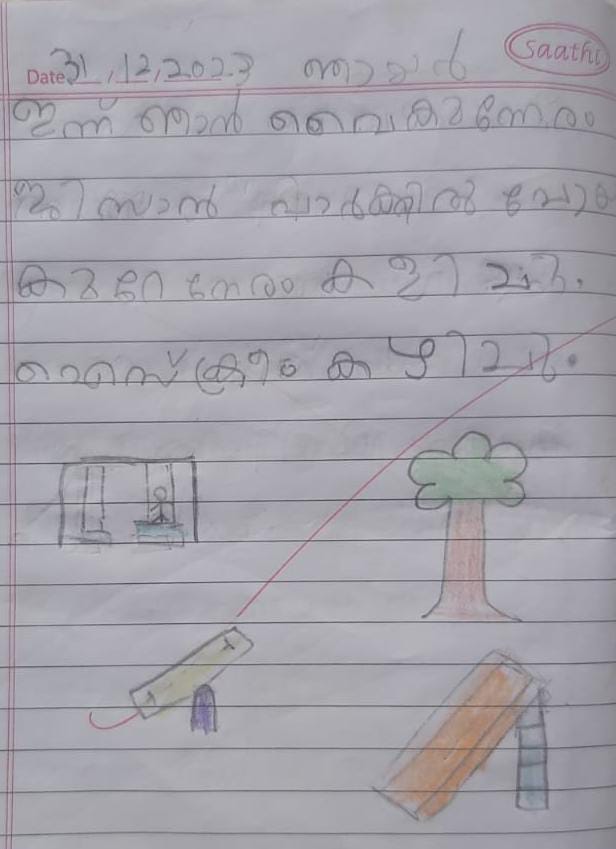 Saathi
Date 31,12,2023 ഞായർ
ഇന്ന് ഞാൻ വൈകുന്നേരം
പാർക്കിൽ പോയ
കുറേ നേരം കളിച്ചു.
ഐസ്ക്രീം കഴിച്ചു.